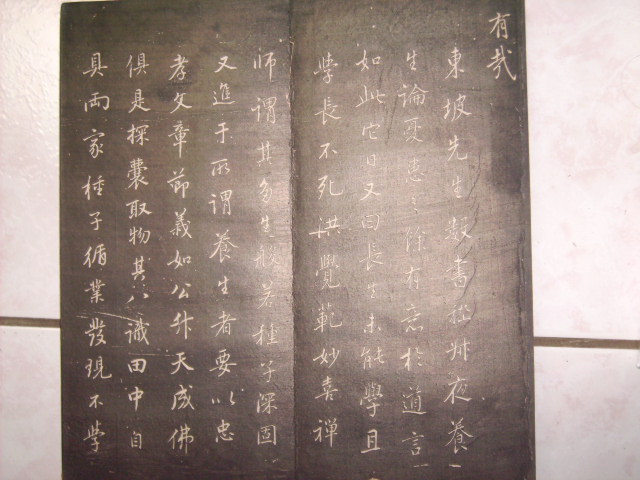 有哉
東坡先生數書㧾對夜養
生論憂患之餘有意於道言
如此它日又曰長生未能學且
學長不死洪覺範妙喜禪
師謂其多生般若種子深固
又進于所謂養生者要以忠
孝文章節義如公升天成佛
俱是探囊取物其八識田中自
具兩家種子循業發現不學